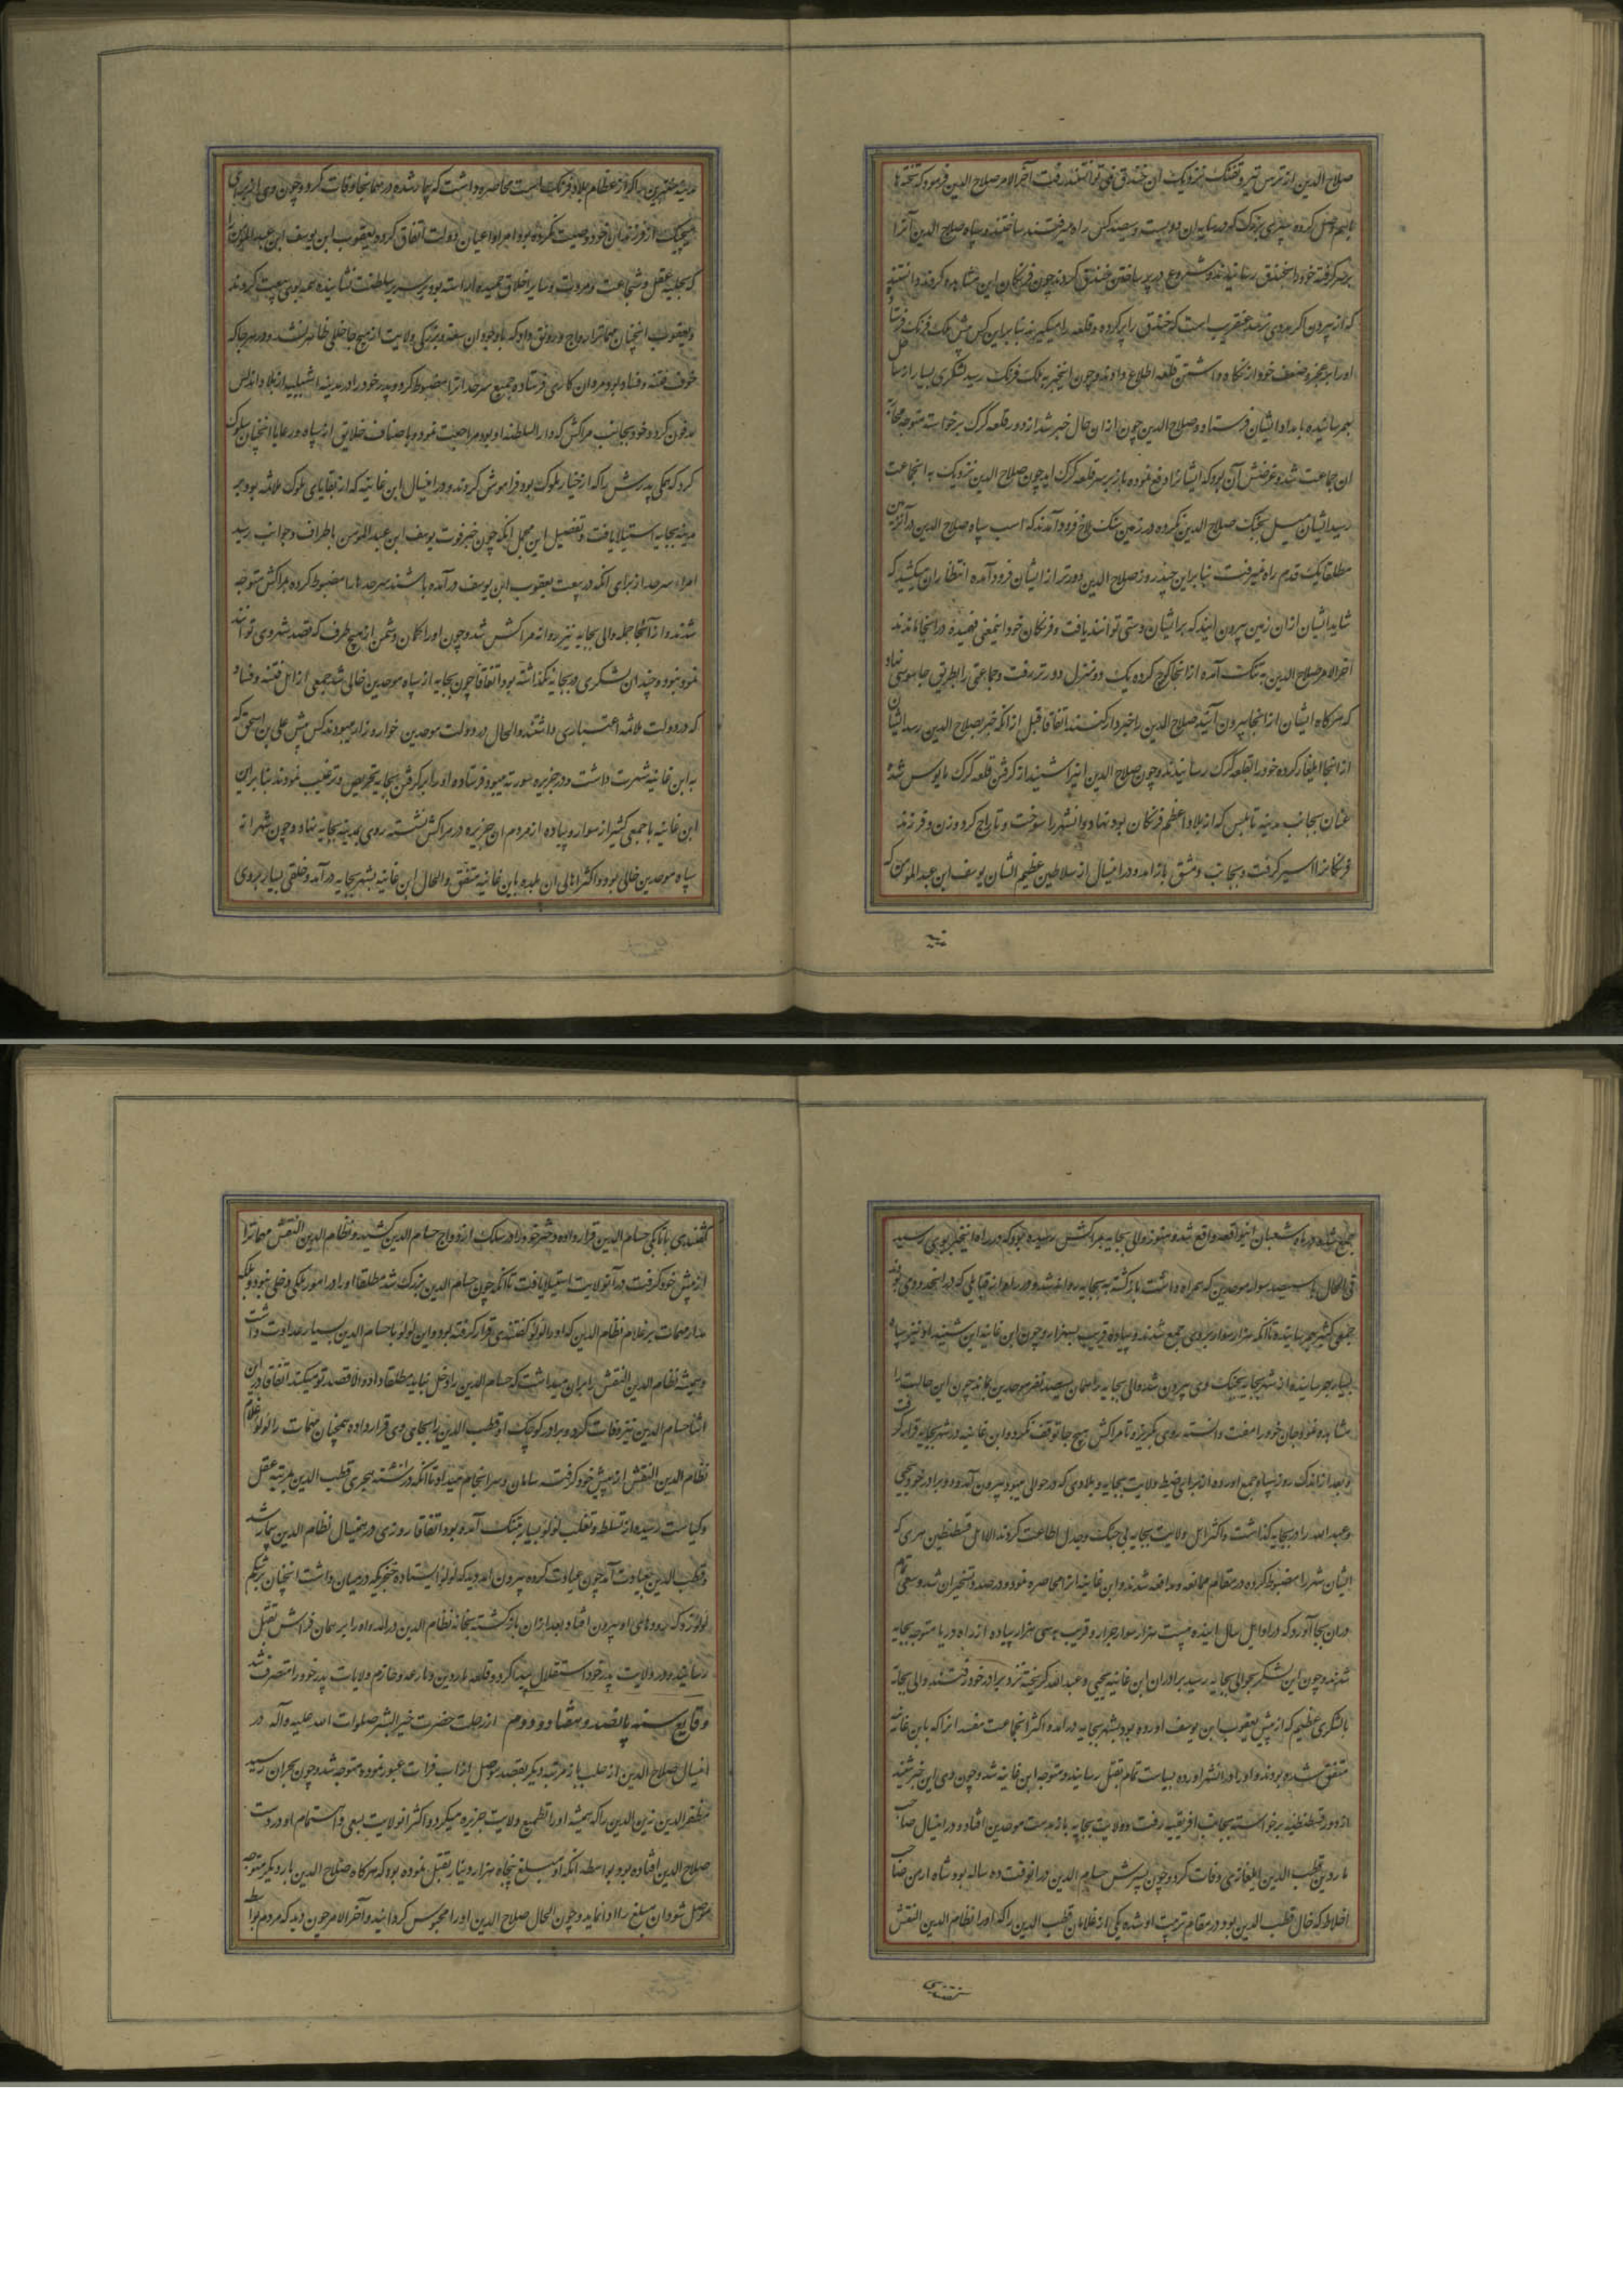 صلاح الدین از ترس تیر و تفنک نزدیک ان خندق نمی توانستند رفت آخر الامر صلاح الدین فرمود که تختها
بهم وصل کرده سپری بزرک که در سایه ان دویست و سیصد کس راه میرفتند ساختند و سپاه صلاح الدین آنرا
بر سر کرفته خود را بخندق رسانیدند و شروع در پر ساختن خندق کردند چون فرنکان این مشاهده کردند دانستند
که از بیرون اکر مددی نرسد عنقریب است که خندق را پر کرده و قلعه را میکیرند بنابراین کس پیش ملک فرنک فرستاده
او را بر عجز و ضعف خود از نکاه داشتن قلعه اطلاع دادند و چون اینخبر به ملک فرنک رسید لشکری بسیار از ساحل
بهم رسانیده بامداد ایشان فرستاد و صلاح الدین چون از ان حال خبر شد از دور قلعه کرک برخواسته متوجه محاربه
ان جماعت شد و غرضش آن بود که ایشانرا دفع نموده باز بر سر قلعه کرک اید چون صلاح الدین نزدیک به انجماعت
رسید ایشان میل بجنک صلاح الدین نکرده در زمین سنک لاخ فرود آمدند که اسب سپاه صلاح الدین در آنزمین
مطلقا یک قدم راه نمیرفت بنابراین چند روز صلاح الدین دورتر از ایشان فرود آمده انتظار ان میکشید که
شاید ایشان از ان زمین بیرون ایند که بر ایشان دستی توانند یافت و فرنکان خود اینمعنی فهمیده در انجا ماندند
اخر الامر صلاح الدین به تنک آمده از انجا کوچ کرده یک دو منزل دورتر رفت و جماعتی را بطریق جاسوسی نهاد
که هرکاه ایشان از انجا بیرون آیند صلاح الدین را خبردار کنند اتفاقا قبل از انکه خبر بصلاح الدین رسد ایشان
از انجا ایلغار کرده خود را بقلعه کرک رسانیدند و چون صلاح الدین اینرا شنید از کرفتن قلعه کرک مایوس شده
عنان بجانب مدینه نابلس که از بلاد اعظم فرنکان بود نهاد و انشهر را سوخت و تاراج کرد و زن و فرزند
فرنکانرا اسیر کرفت و بجانب دمشق باز امد و در اینسال از سلاطین عظیم الشان یوسف ابن عبد المومن که
مدینه شنترین را که از عظام بلاد فرنک است محاصره داشت که بیمار شده در همانجا وفات کرد و چون وی از برای
هیچیک از فرزندان خود وصیت نکرده بود امرا و اعیان دولت اتفاق کرده یعقوب ابن یوسف ابن عبد المومن را
که بحلیه عقل و شجاعت و مروت و سایر اخلاق حمیده اراسته بود بر سریر سلطنت نشانیده همه بوی بیعت کردند
و یعقوب انچنان مهماترا رواج و رونق داد که با وجود ان سعه و بزرکی ولایت از هیچ جا خللی ظاهر نشد و در هر جا که
خوف فتنه و فساد بود مردان کاری فرستاد و جمیع سرحدانرا مضبوط کرد و پدر خود را در مدینه اشبیلیه از بلاد اندلس
مدفون کرد و خود بجانب مراکش که دار السلطنه او بود مراجعت نمود و با صناف خلایق از سپاه و رعایا انچنان سلوک
کرد که نیکی پدرش را که از خیار ملوک بود فراموش کردند و در اینسال ابن غانیه که از بقایای ملوک ملاثمه بود بر
مدینه بجایه استیلا یافت و تفصیل این مجمل انکه چون خبر فوت یوسف ابن عبد المومن باطراف و جوانب رسید
امراء سرحد از برای انکه در بیعت یعقوب ابن یوسف در آمده باشند سرحدها را مضبوط کرده بمراکش متوجه
شدند و از آنجمله والی بجایه نیز روانه مراکش شد و چون او را کمان دشمن از هیچ طرف که قصد شهر وی تواند
نمود نبود چندان لشکری در بجایه نکذاشته بود اتفاقا چون بجایه از سپاه موحدین خالی شد جمعی از اهل فتنه و فساد
که در دولت ملاثمه اعتباری داشتند و الحال در دولت موحدین خوار و زار میبودند کس پیش علی بن اسحق که
به ابن غانیه شهرت داشت و در جزیره میورقه میبود فرستاده او را بر کرفتن بجایه تحریص و ترغیب نمودند بنابراین
ابن غانیه با جمعی کثیر از سوار و پیاده از مردم ان جزیره در مراکب نشسته روی بمدینه بجایه نهاد و چون شهر از
سپاه موحدین خالی بود و اکثر اهالی ان بلده با ابن غانیه متفق و الحال ابن غانیه بشهر بجایه در آمد و خلقی بسیار بر وی
جمع شده در ماه شعبان اینواقعه واقع شد و هنوز والی بجایه بمراکش نرسیده بود که در راه اینخبر بوی رسید
فی الحال با سیصد سوار موحدین که همراه داشت باز کشته به بجایه روانه شد و در راه از قبایلی که در انحدود بودند
جمعی کثیر بهم رسانیده تا انکه هزار سوار بر وی جمع شدند و پیاده قریب بهزار و چون ابن غانیه این شنید او نیز سپاه
بسیار بهم رسانیده از شهر بجایه بجنک وی بیرون شد والی بجایه را همان سیصد نفر موحدین ماندند چون این حالت را
مشاهده نمود جان خود را مفت دانسته روی بکریز و تا مراکش هیچ جا توقف نکرد و ابن غانیه در شهر بجایه قرار کرفت
و بعد از اندک روز سپاه جمع اورده از برای ضبط ولایت بجایه و بلادی که در حوالی میبود بیرون آمد و دو برادر خود یحیی
و عبد الله را در بجایه کذاشت و اکثر اهل ولایت بجایه بی جنک و جدل اطاعت کردند الا اهل قسطنطین هری که
ایشان شهر را مضبوط کرده در مقام ممانعه و مدافعه شدند و ابن غانیه انرا محاصره نموده در صدد تسخیر ان شد و سعی تمام
در ان بجا آورد که در اوایل سال اینده بیست هزار سوار جرار و قریب به سی هزار پیاده از راه دریا متوجه بجایه
شدند و چون این لشکر بحوالی بجایه رسید برادران ابن غانیه یحیی و عبد الله کریخته نزد برادر خود رفتند والی بجایه
با لشکری عظیم که از پیش یعقوب ابن یوسف اورده بود بشهر بجایه در امد و اکثر انجماعت مفسد انرا که بابن غانیه
متفق شده بودند و او را در انشهر اورده بسیاست تمام بقتل رسانید و متوجه ابن غانیه شد و چون وی این خبر شنید
از دور قسطنطنیه برخواسته بجانب افریقیه رفت و ولایت بجایه باز بدست موحدین افتاد و در اینسال صاحب
ماردین قطب الدین ایلغازی وفات کرد و چون پسرش حسام الدین در انوقت ده ساله بود شاه ارمن صاحب
اخلاط که خال قطب الدین بود در مقام تربیت او شده یکی از غلامان قطب الدین را که او را نظام الدین البقش
کفتندی باتابکی حسام الدین قرار داده دختر خود را در سلک ازدواج حسام الدین کشید و نظام الدین البقش مهماترا
از پیش خود کرفت در آنولایت استیلا یافت تا انکه چون حسام الدین بزرک شد مطلقا او را در امور ملکی دخلی نبود و بلکه
مدار مهمات بر غلام نظام الدین که او را لولو کفتندی قرار کرفته بود و این لولو با حسام الدین بسیار عداوت داشت
و همیشه نظام الدین البقش را بران میداشت که حسام الدین را دخل نباید مطلقا داد و الا قصد تو میکند اتفاقا در این
اثنا حسام الدین نیز وفات کرد و برادر کوچک او قطب الدین را بجای وی قرار داده همچنان مهمات را لولو غلام
نظام الدین البقش از پیش خود کرفته سامان و سرانجام میداد تا انکه در سنه هجری قطب الدین بمرتبه عقل
و کیاست رسیده از تسلط و تغلب لولو بسیار بتنک آمده بود اتفاقا روزی در همینسال نظام الدین بیمار شد
و قطب الدین بعیادت آمد چون عیادت کرده بیرون امد دید که لولو ایستاده خنجریکه در میان داشت انچنان بر شکم
لولو زد که رودهای او بیرون افتاد بعد از ان باز کشته بخانه نظام الدین در امد و او را بر همان فراش بقتل
رسانیده در ولایت پدر خود استقلال پیدا کرد و قلعه ماردین و نار عد و خازم ولایات پدر خود را متصرف شد
وقایع سنه پانصد و هفتاد و دوم از رحلت حضرت خیر البشر صلوات الله علیه و آله در
اینسال صلاح الدین از حلب باز مرتبه دیکر بقصد موصل از اب فرات عبور نموده متوجه شد و چون بحران رسید
مظفر الدین زین الدین را که همیشه او را تطمیع ولایت جزیره میکرد و اکثر انولایت بسعی و اهتمام او در دست
صلاح الدین افتاده بود بواسطه انکه او مبلغ پنجاه هزار دینار بقتبل نموده بود که هرکاه صلاح الدین بار دیکر متوجه
موصل شود ان مبلغ را ادا نماید و چون الحال صلاح الدین او را محبوس کردانید و آخر الامر چون دید که مردم بواسطه